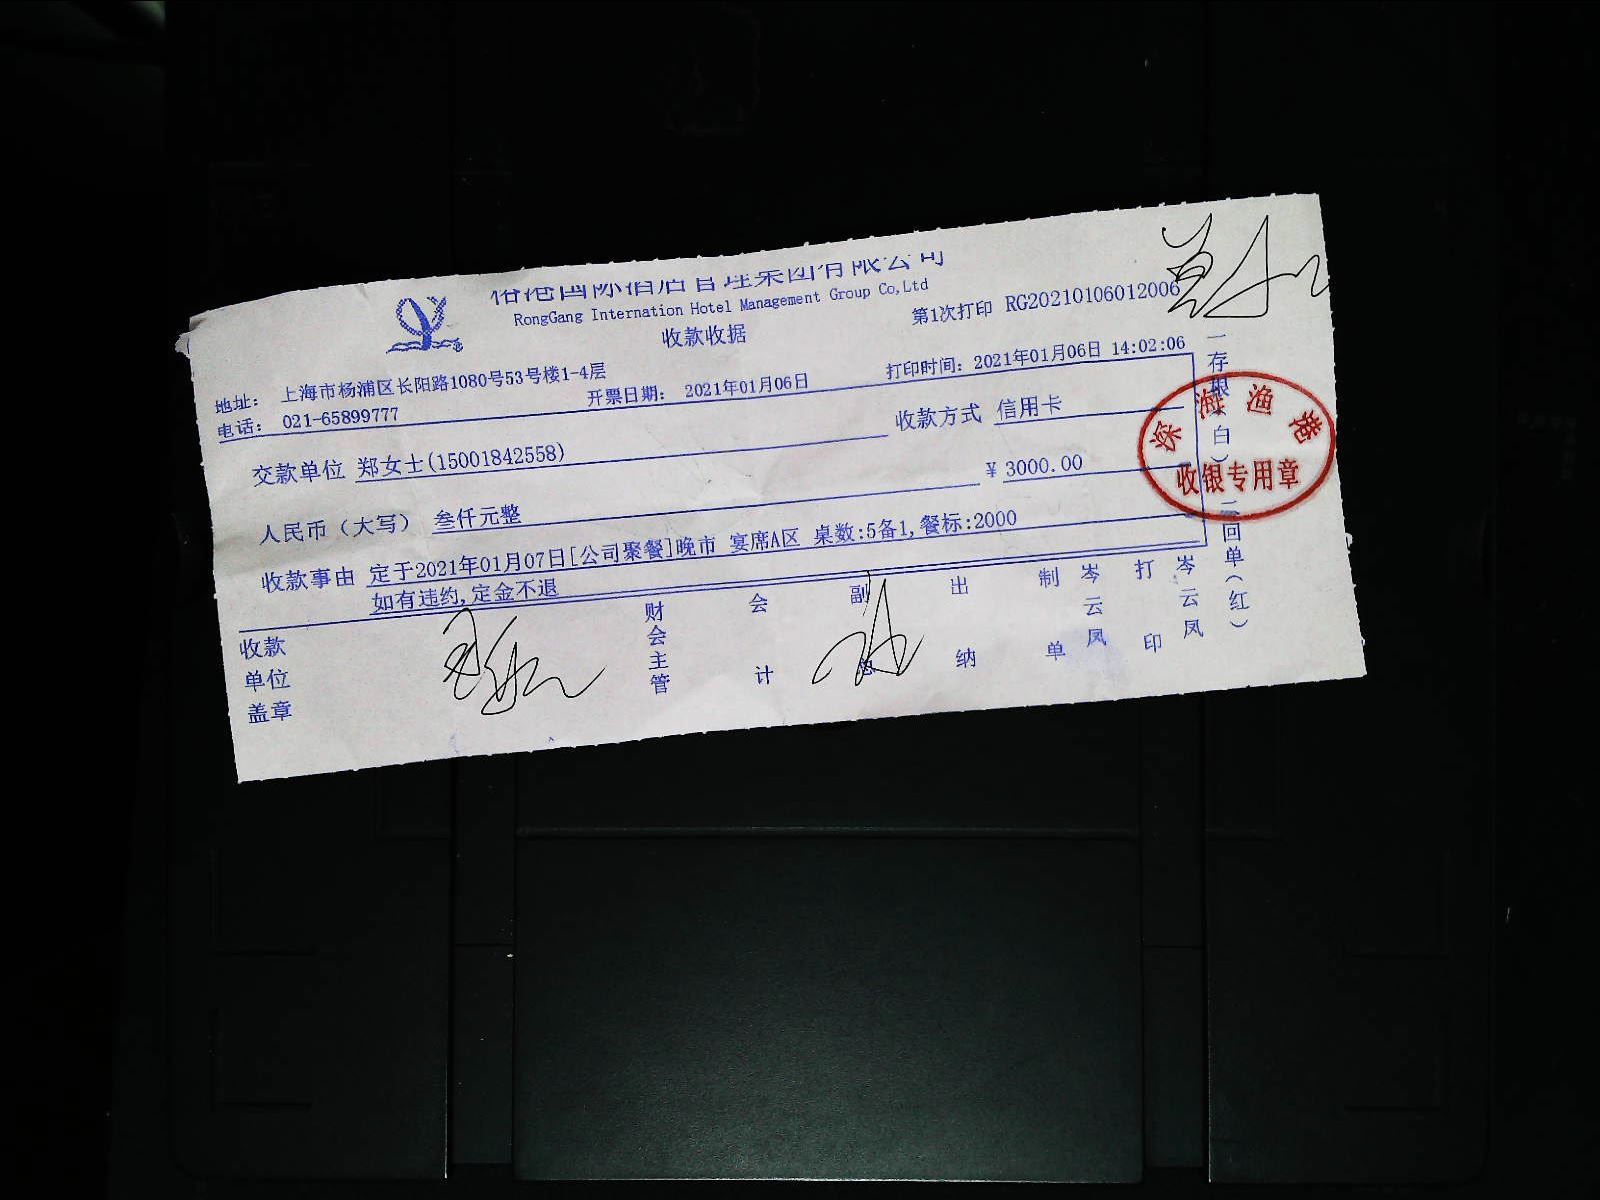 国际酒店管理集团有限公司
RongGang Internation Hotel Management Group Co,Ltd
收款收据
第1次打印 RG20210106012006
地址： 上海市杨浦区长阳路1080号53号楼1-4层
电话： 021-65899777
开票日期： 2021年01月06日
打印时间： 2021年01月06日 14:02:06
交款单位 郑女士(15001842558)
收款方式 信用卡
人民币（大写） 叁仟元整
¥ 3000.00
收款事由 定于2021年01月07日[公司聚餐]晚市 宴席A区 桌数:5备1,餐标:2000
如有违约,定金不退
收款单位盖章
财会主管
会计
副
出纳
制单
岑云凤
打印
岑云凤
一存根（白）
二回单（红）
深海渔港
收银专用章